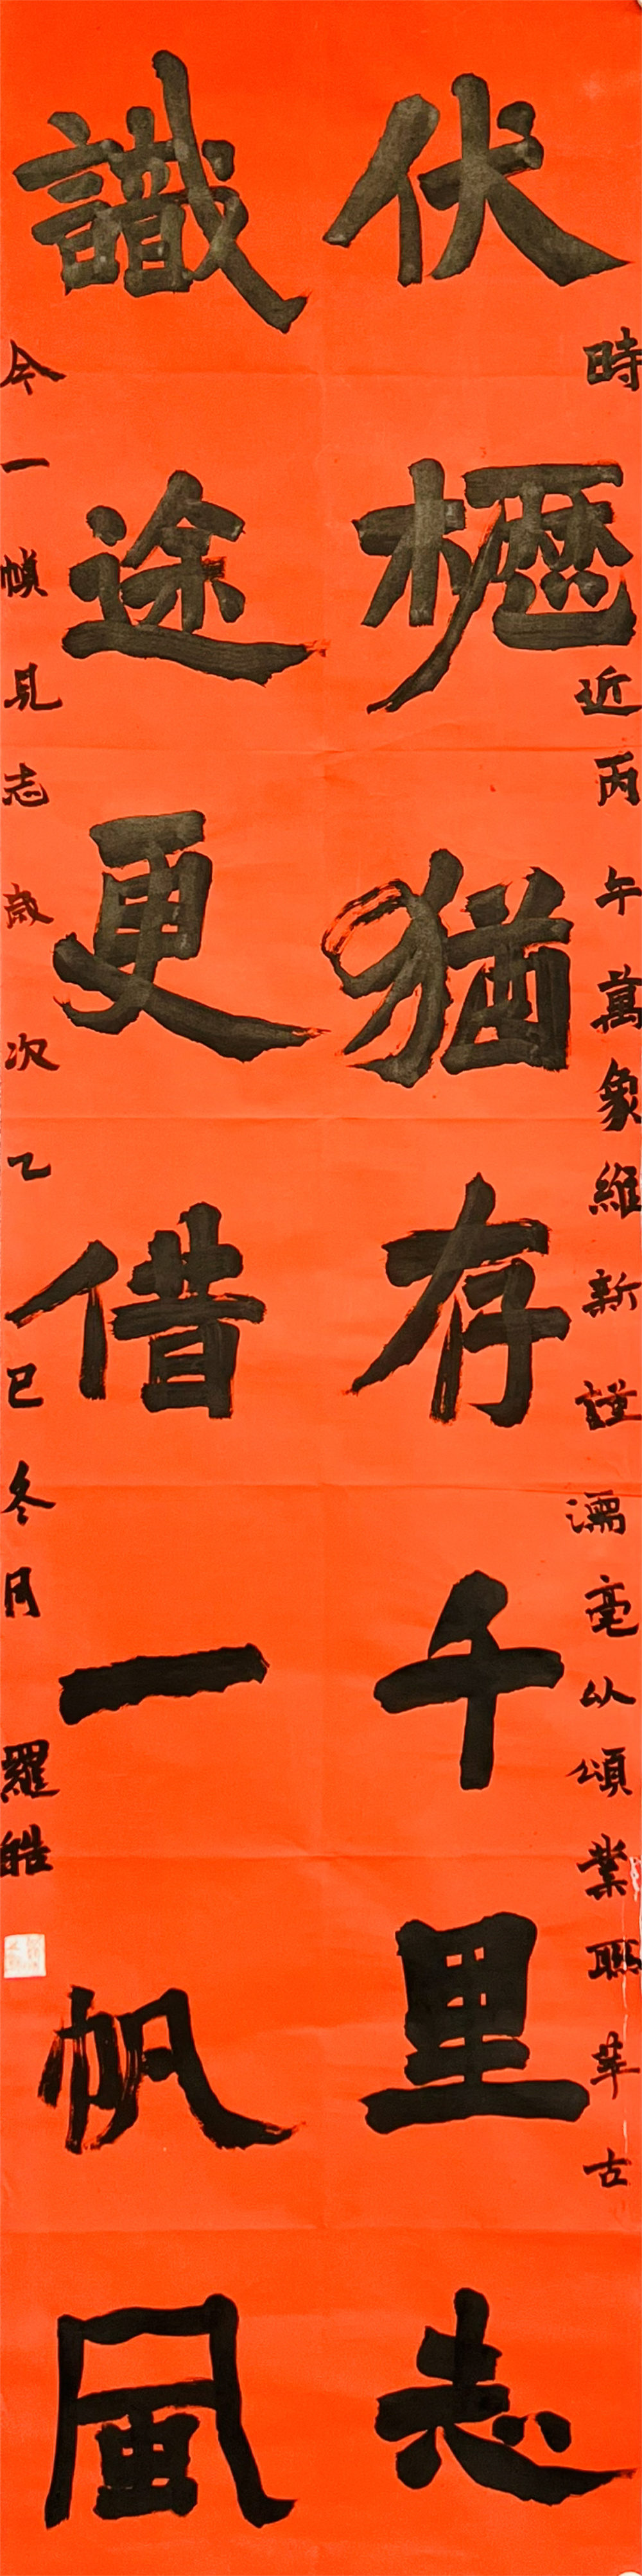 時近丙午萬象維新謹濡毫以頌業聯萃古
伏櫪猶存千里志
識途更借一帆風
今一幀見志歲次乙巳冬月羅皓